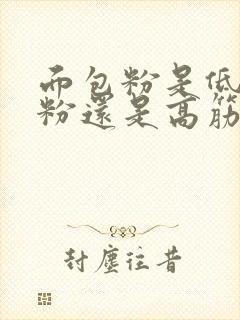 而包粉是低
粉還是高筋
封塵往昔